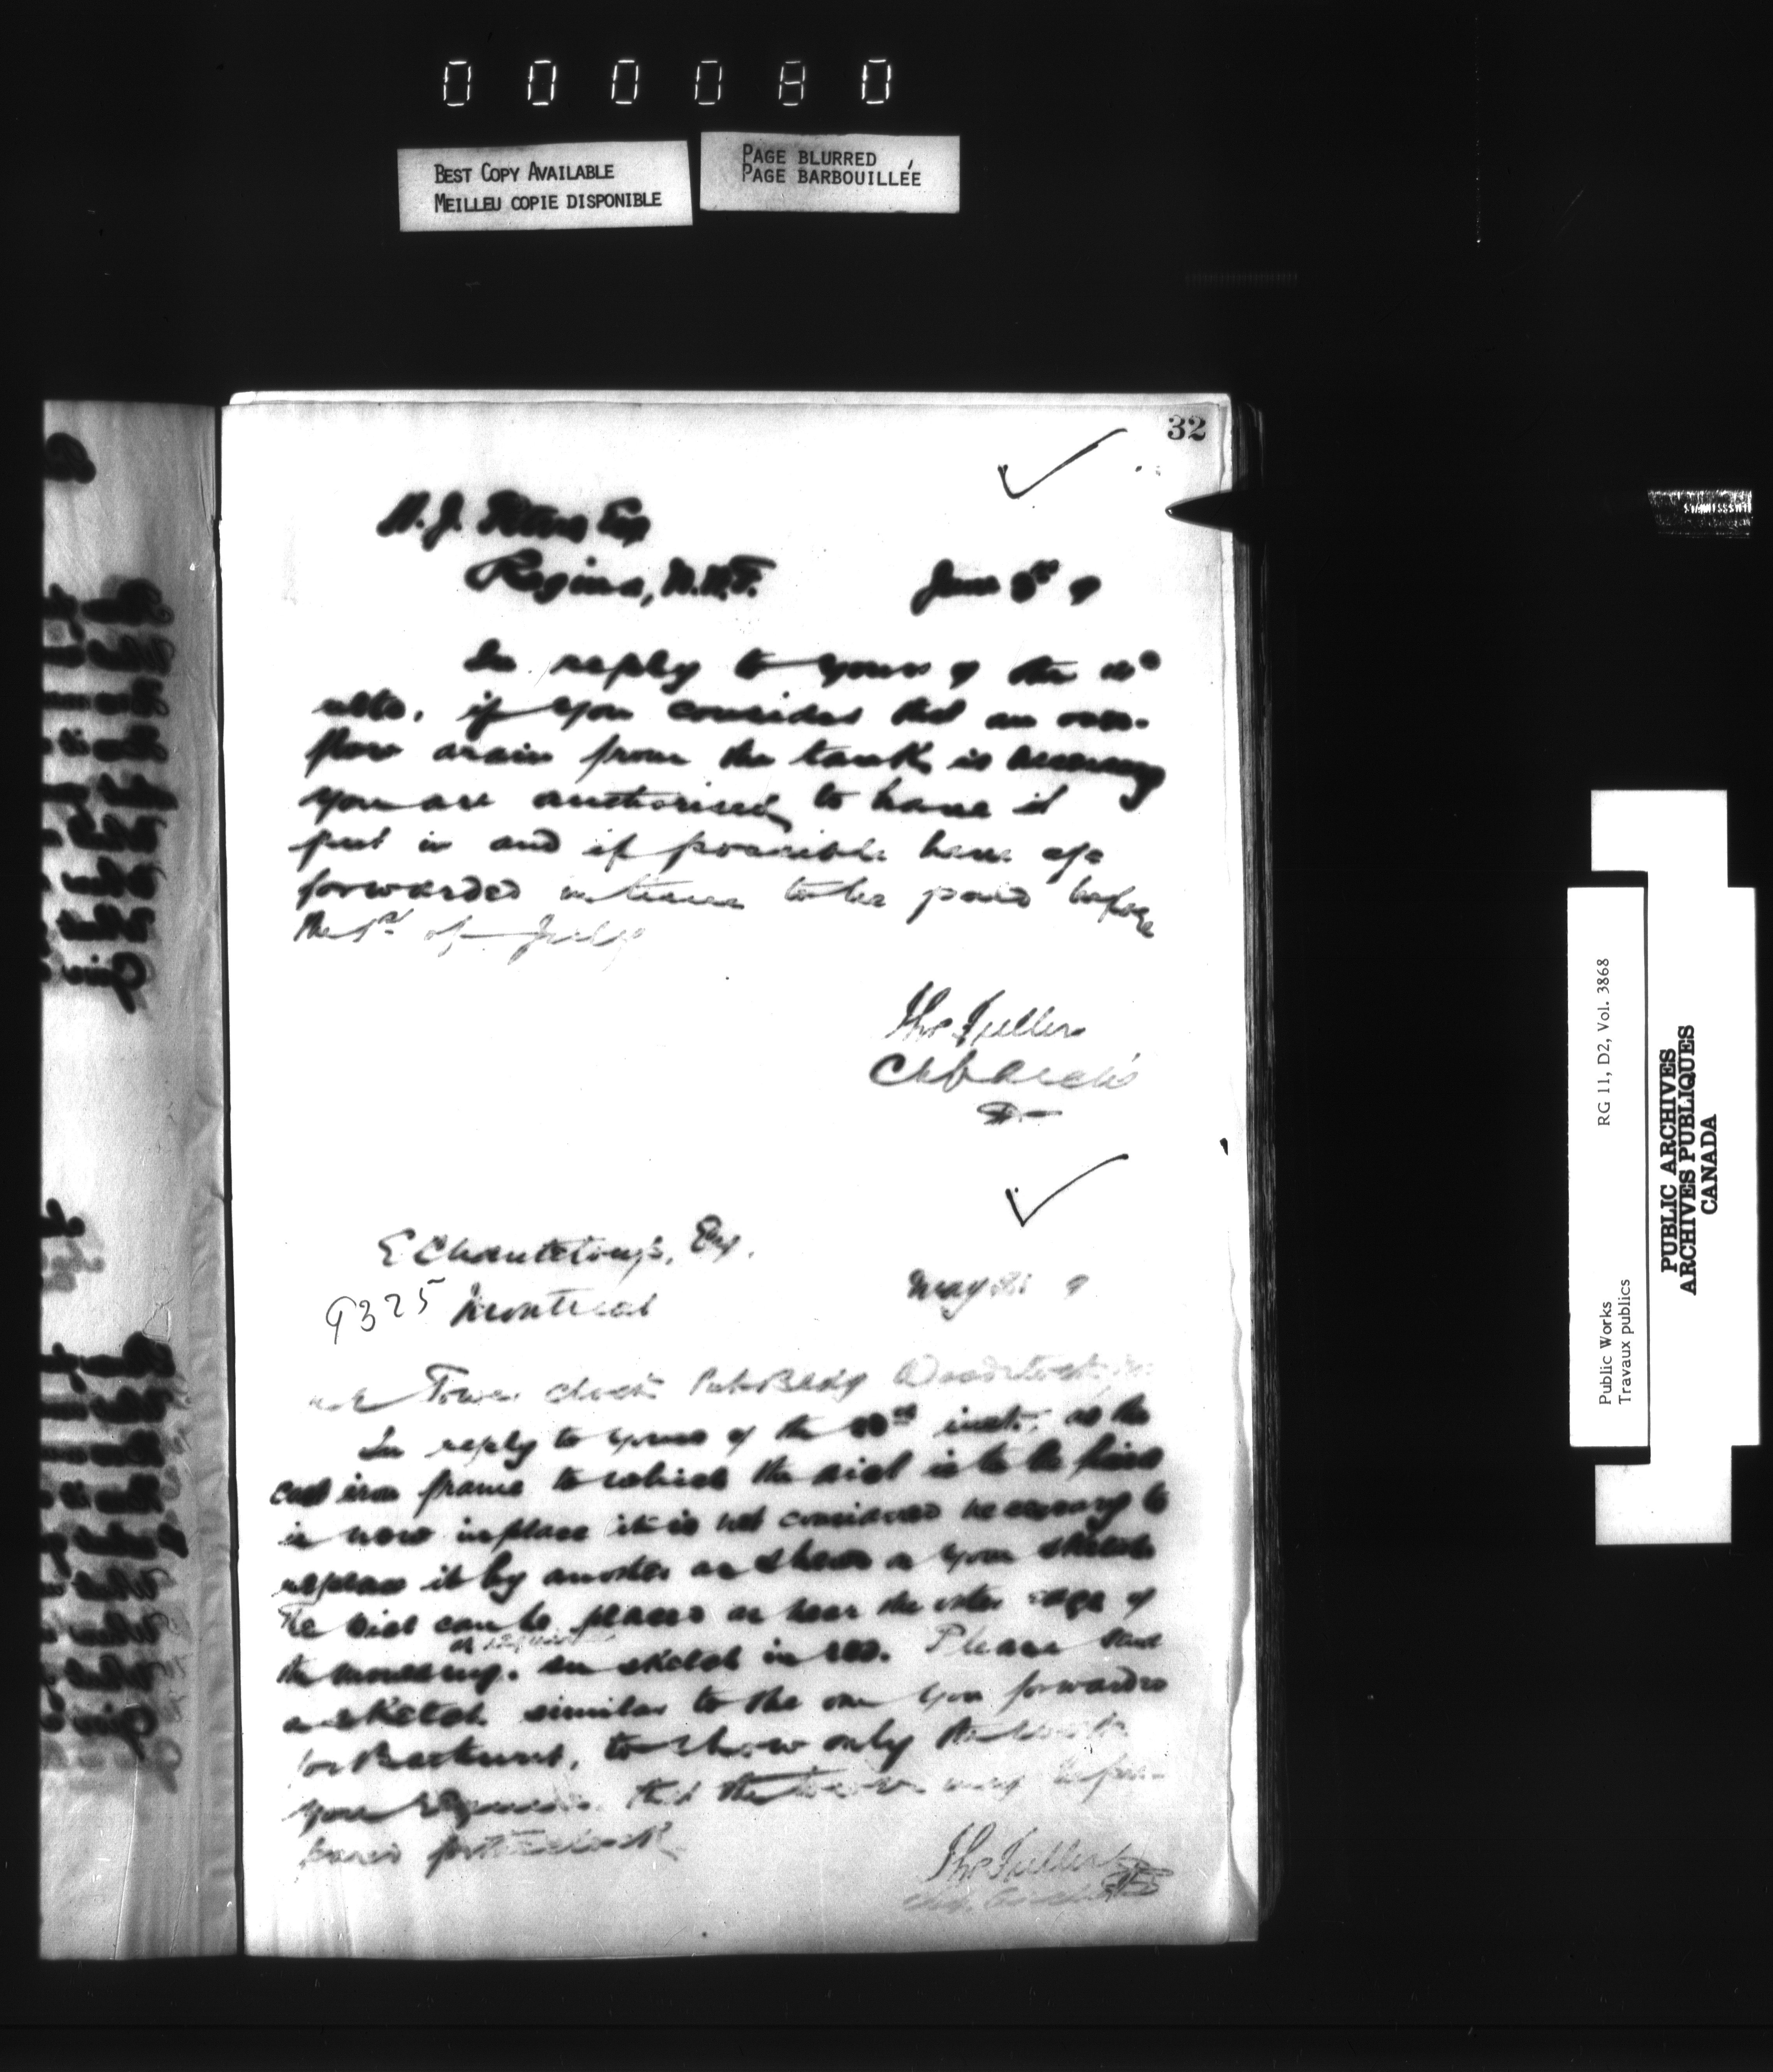 0 0 0 0 8 0
BEST COPY AVAILABLE
MEILLEU COPIE DISPONIBLE
PAGE BLURRED
PAGE BARBOUILLÉE
32
Esq
Regina, N.W.T. June
In reply to yours of the
ulto, if you consider that an over-
flow drain from the tank is necessary
you are authorised to have it
put in and if possible have a/c
forwarded in time to be paid before
the 1st of July
Thos Fuller
Ch Archt
E Chanteloup, Esq.
9325 Montreal May
Tower clock Pub Bldg Woodstock
In reply to yours of the inst. as the
cast iron frame to which the dial is to be fixed
is now in place it is not considered necessary to
replace it by another as shown on your sketch
The dial can be placed as near the outer edge of
the moulding. on sketch in red. Please send
a sketch similar to the one you forwarded
for Bathurst, to show only the
you that the may be pre-
pared for the clock
Thos Fuller
RG 11, D2, Vol. 3868
Public Works
Travaux publics
PUBLIC ARCHIVES
ARCHIVES PUBLIQUES
CANADA